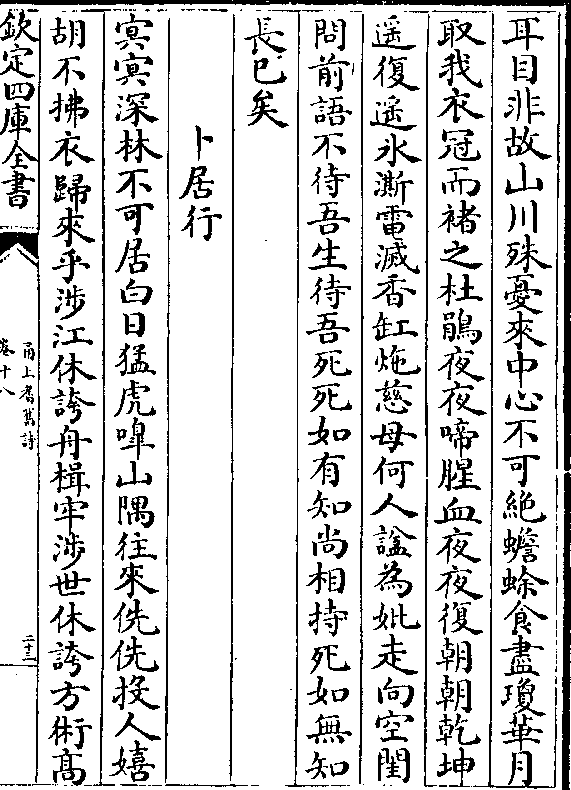 耳目非故山川殊憂來中心不可絶蟾蜍食盡瓊華月
取我衣冠而褚之杜鵑夜夜啼腥血夜夜復朝朝乾坤
遥復遥氷澌雷滅香缸灺慈母何人謚為妣走向空閨
問前語不待吾生待吾死死如有知尚相持死如無知
長已矣
卜居行
㝠㝠深林不可居白日猛虎嘷山隅往來侁侁投人嬉
胡不拂衣歸來乎涉江休誇舟楫牢涉世休誇方術髙
欽定四庫全書
甬上耆舊詩
卷十八
二十三